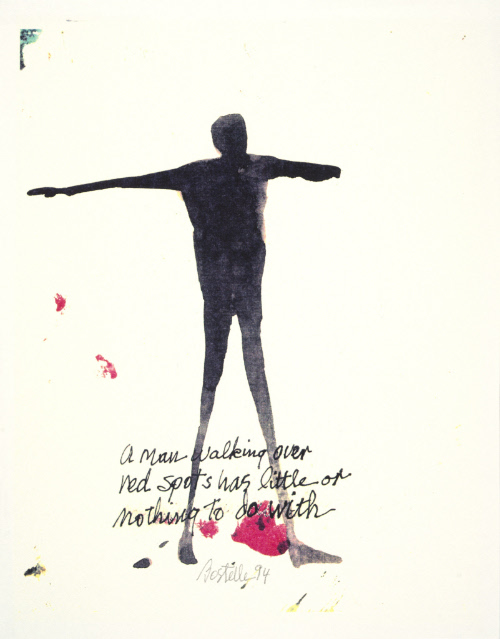 a man walking over
red spots has little or
nothing to do with
Bostelle 94